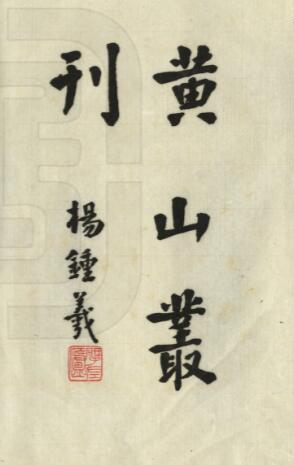 黄山叢
刊
楊鍾羲